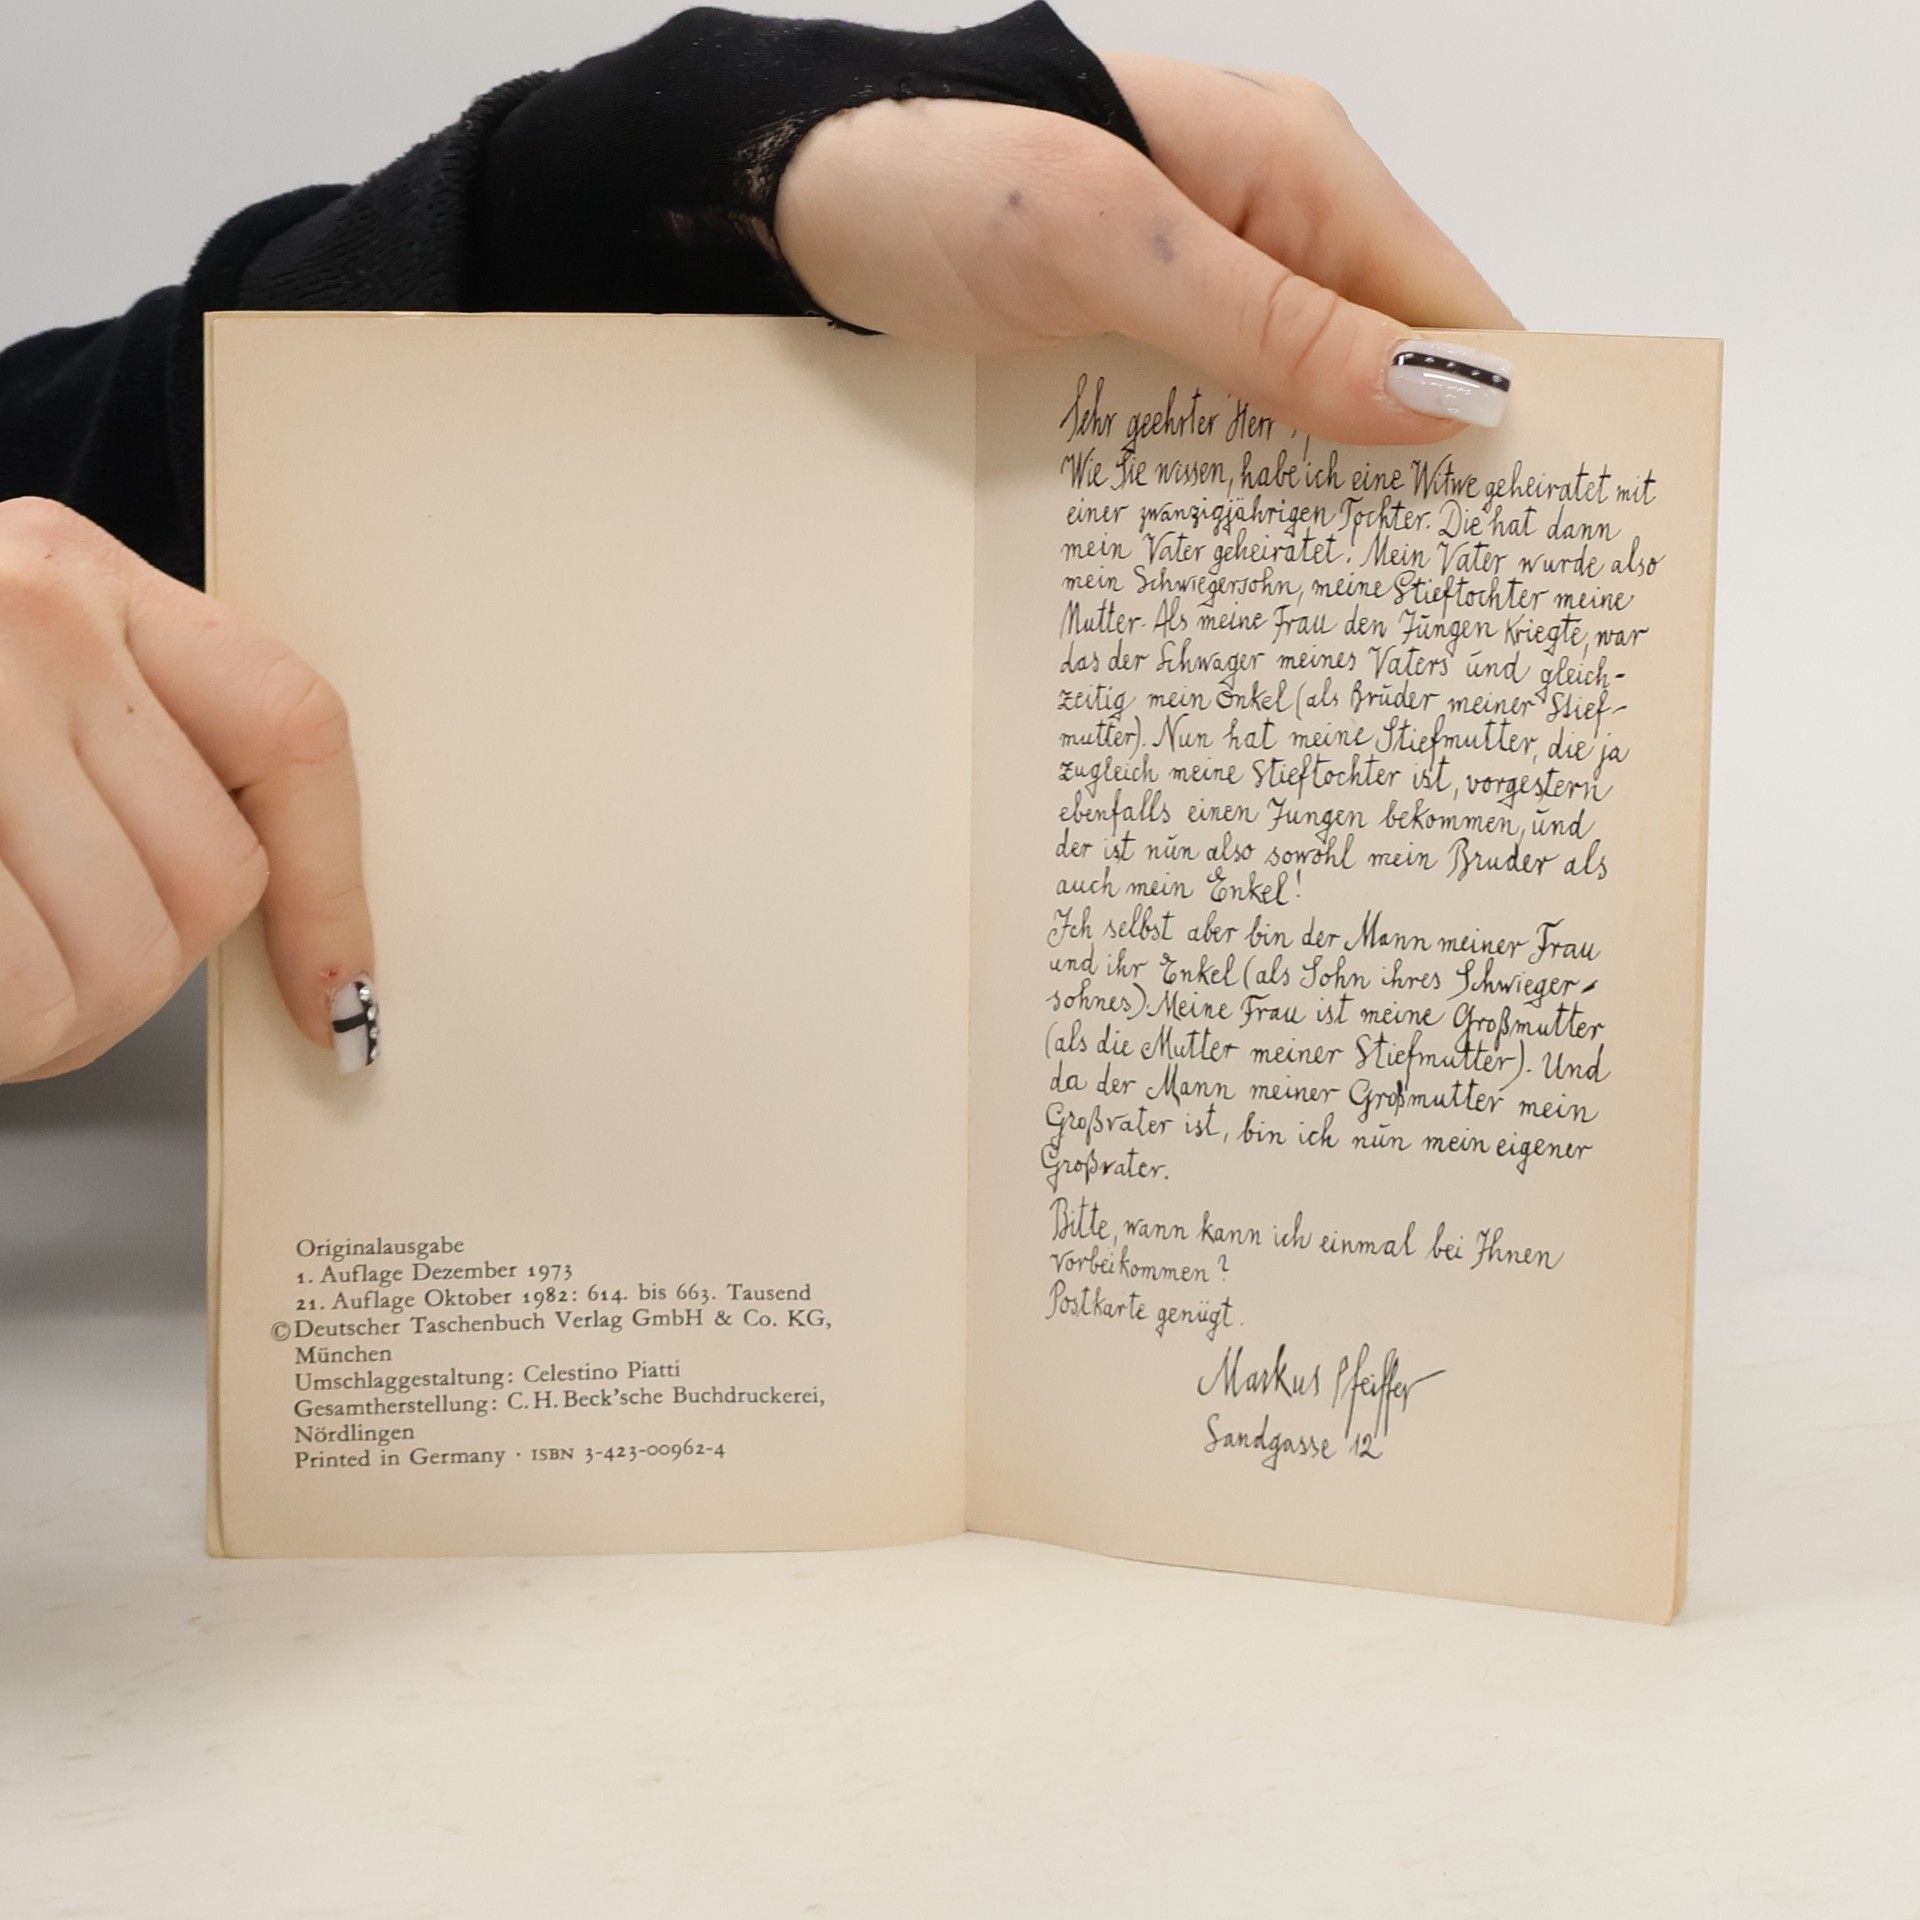 Originalausgabe
1. Auflage Dezember 1973
21. Auflage Oktober 1982: 614. bis 663. Tausend
© Deutscher Taschenbuch Verlag GmbH & Co. KG,
München
Umschlaggestaltung: Celestino Piatti
Gesamtherstellung: C. H. Beck'sche Buchdruckerei,
Nördlingen
Printed in Germany · ISBN 3-423-00962-4
Sehr geehrter Herr
Wie Sie wissen, habe ich eine Witwe geheiratet mit
einer zwanzigjährigen Tochter. Die hat dann
mein Vater geheiratet. Mein Vater wurde also
mein Schwiegersohn, meine Stieftochter meine
Mutter. Als meine Frau den Jungen kriegte, war
das der Schwager meines Vaters und gleich-
zeitig mein Onkel (als Bruder meiner Stief-
mutter). Nun hat meine Stiefmutter, die ja
zugleich meine Stieftochter ist, vorgestern
ebenfalls einen Jungen bekommen, und
der ist nun also sowohl mein Bruder als
auch mein Enkel!
Ich selbst aber bin der Mann meiner Frau
und ihr Enkel (als Sohn ihres Schwieger-
sohnes). Meine Frau ist meine Großmutter
(als die Mutter meiner Stiefmutter). Und
da der Mann meiner Großmutter mein
Großvater ist, bin ich nun mein eigener
Großvater.
Bitte, wann kann ich einmal bei Ihnen
vorbeikommen?
Postkarte genügt.
Markus Pfeiffer
Sandgasse 12